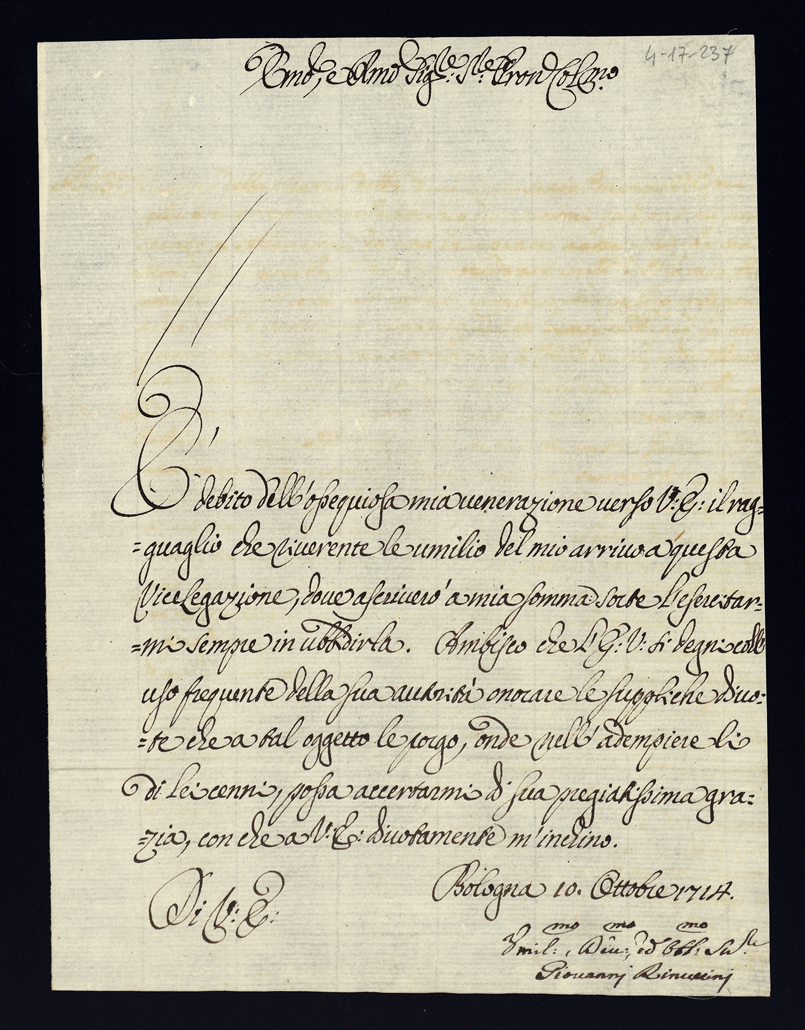 4-17-237
Emo, e Rmo Sig:re S:re Pron Colmo.
È debito dell'ossequiosa mia venerazione verso V: E: il rag=
=guaglio che riverente le umilio del mio arrivo a questa
ViceLegazione, dove ascriverò a mia somma sorte l'esercitar=
=mi sempre in ubbidirla. Ambisco che l'E: V: si degni coll'
uso frequente della sua autorità onorare le suppliche divo=
=te che a tal oggetto le porgo, onde nell'adempiere li
di lei cenni, possa accertarmi di sua pregiatissima gra=
=zia, con che a V: E: divotamente m'inchino.
Bologna 10. Ottobre 1714.
Di V: E:
Umil:mo, Div:mo, ed Obb:mo Se:re
Giovannj Rinuccinj